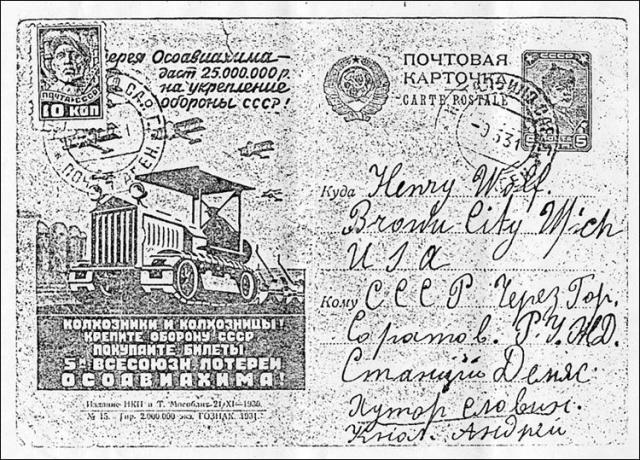 Лотерея Осоавиахима—
даст 25.000.000 р.
на укрепление
обороны СССР!
ПОЧТА СССР
10 КОП
ПОЧТОВАЯ
КАРТОЧКА
CARTE POSTALE
ПОЧТА 5
Куда Henry Wolf.
Brown City Mich
USA
Кому СССР Через Гор.
Соратов. Р.У.Ж.Д.
Станций
Хутор
Андрей
КОЛХОЗНИКИ И КОЛХОЗНИЦЫ!
КРЕПИТЕ ОБОРОНУ СССР
ПОКУПАЙТЕ БИЛЕТЫ
5й ВСЕСОЮЗН. ЛОТЕРЕИ
ОСОАВИАХИМА!
Издание НКП и Т. Мособлит 21/XI—1930.
№ 15. Тир. 2.000.000 экз. ГОЗНАК. 1931.